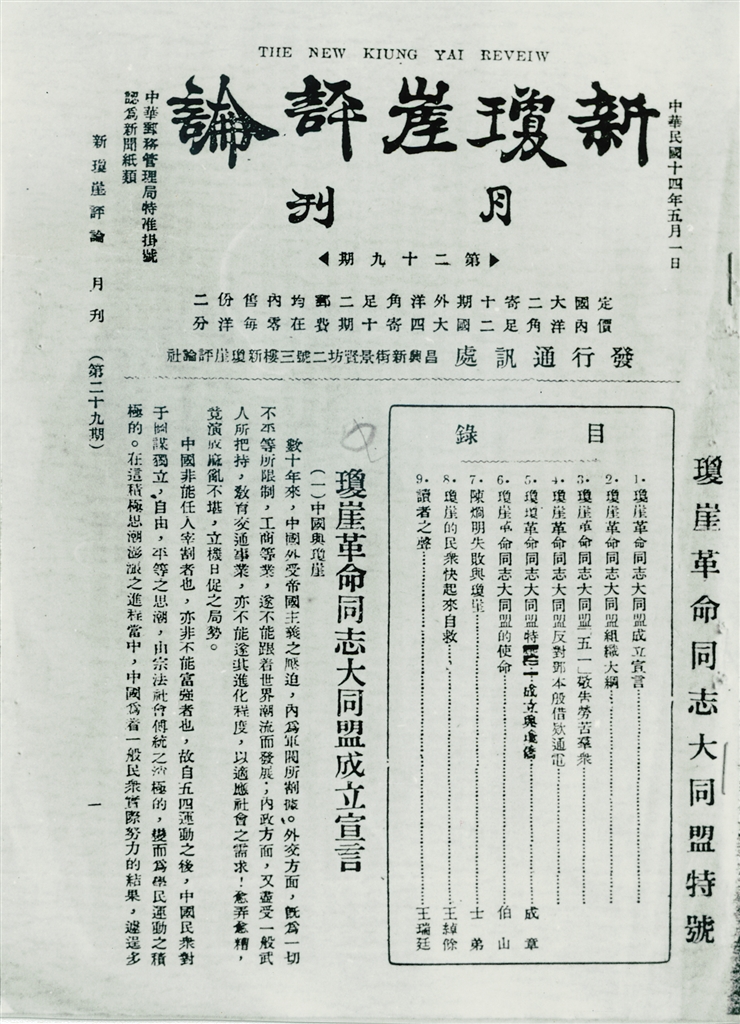 THE NEW KIUNG YAI REVEIW
中華民國十四年五月一日
新瓊崖評論
月刊
第二十九期
中華郵務管理局特准掛號
認為新聞紙類
新瓊崖評論 月刊 (第二十九期)
定價國內大洋二角寄足十二期國外大洋四角寄足十二期郵費均在內零售每份洋二分
發行通訊處 昌興新街景賢坊二號三樓新瓊崖評論社
瓊崖革命同志大同盟特號
目錄
1. 瓊崖革命同志大同盟成立宣言
2. 瓊崖革命同志大同盟組織大綱
3. 瓊崖革命同志大同盟「五一」敬告勞苦羣衆
4. 瓊崖革命同志大同盟反對鄧本殷借欵通電
5. 瓊崖革命同志大同盟特 成立與瓊僑 成章
6. 瓊崖革命同志大同盟的使命 伯山
7. 陳烱明失敗與瓊崖 士弟
8. 瓊崖的民衆快起來自救 王綽餘
9. 讀者之聲 王瑞廷
瓊崖革命同志大同盟成立宣言
(一)中國與瓊崖
數十年來,中國外受帝國主義之壓迫,內為軍閥所割據。外交方面,旣為一切
不平等所限制,工商等業,遂不能跟着世界潮流而發展;內政方面,又盡受一般武
人所把持,敎育交通事業,亦不能遂其進化程度,以適應社會之需求!愈弄愈糟,
竟演成麻亂不堪,立機日促之局勢。
中國非能任人宰割者也,亦非不能富強者也,故自五四運動之後,中國民衆對
于圖謀獨立,自由,平等之思潮,由宗法社會傅統之消極的,變而為學民運動之積
極的。在這積極思潮澎湃之進程當中,中國為着一般民衆實際努力的結果,遽逞多
一